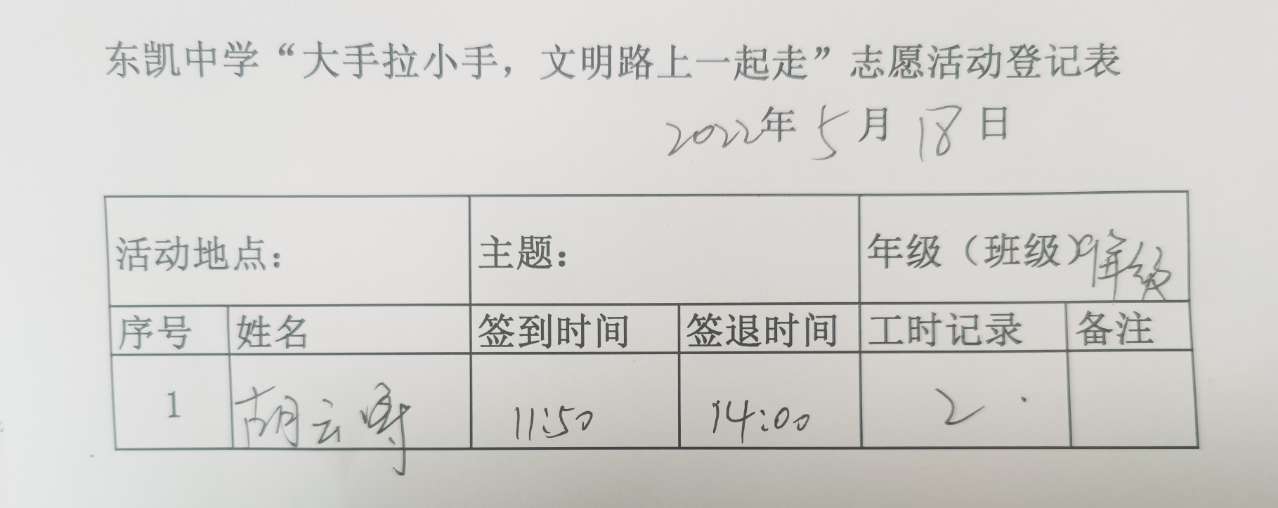 东凯中学“大手拉小手，文明路上一起走”志愿活动登记表
2022年5月18日
活动地点： 主题： 年级（班级）9年级
序号 姓名 签到时间 签退时间 工时记录 备注
1 胡云 11:50 14:00 2